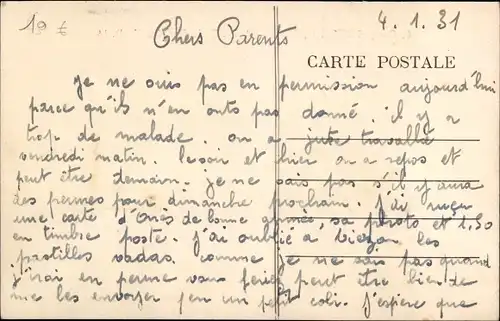 19 €
4.1.31
Chers Parents
CARTE POSTALE
Je ne suis pas en permission aujourd'hui
parce qu'ils n'en onts pas donné. il y a
trop de malade. on a juste travallé
vendredi matin. le soir et hier on a repos et
peut être demain. je ne sais pas s'il y aura
des permes pour dimanche prochain. j'ai reçu
une carte d' de bonne année, sa photo et 1,50
en timbre poste. j'ai oublié a les
pastilles vadas. comme je ne sais pas quand
j'irai en perme vous feriez peut être bien de
me les envoyer en un petit coli. J'espère que